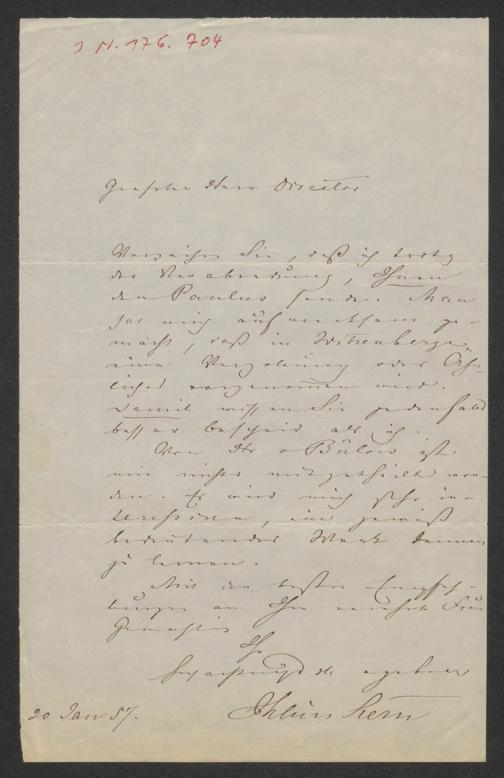 I N. 176. 704
Geehrter Herr Director
Verzeihen Sie, daß ich trotz
der Verabredung, Ihnen
den Paulus sende. Man
hat mich aufmerksam ge-
macht, daß in
eine oder Aehn-
liches vorgenommen wird.
Damit wissen Sie jedenfalls
besser bescheid als ich.
Von Hr v Bülow ist
mir nichts mitgetheilt wor-
den. Es wird mich sehr in-
teressiren, ein gewiß
bedeutendes Werk kennen
zu lernen.
Mit den besten Empfeh-
lungen an Ihre verehrte Frau
Gemahlin
Ihr
hochachtungsv. ergebener
Julius Stern
20 Jan 57.